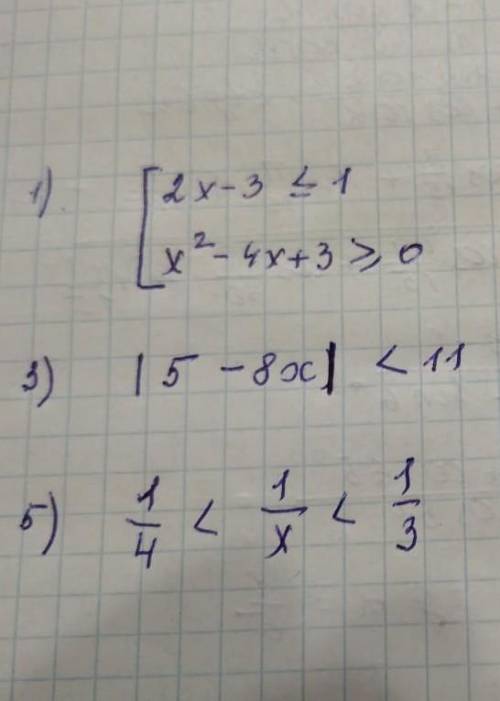 1) [ 2x - 3 ≤ 1
x² - 4x + 3 ≥ 0
3) |5 - 8x| < 11
5) 1/4 < 1/x < 1/3